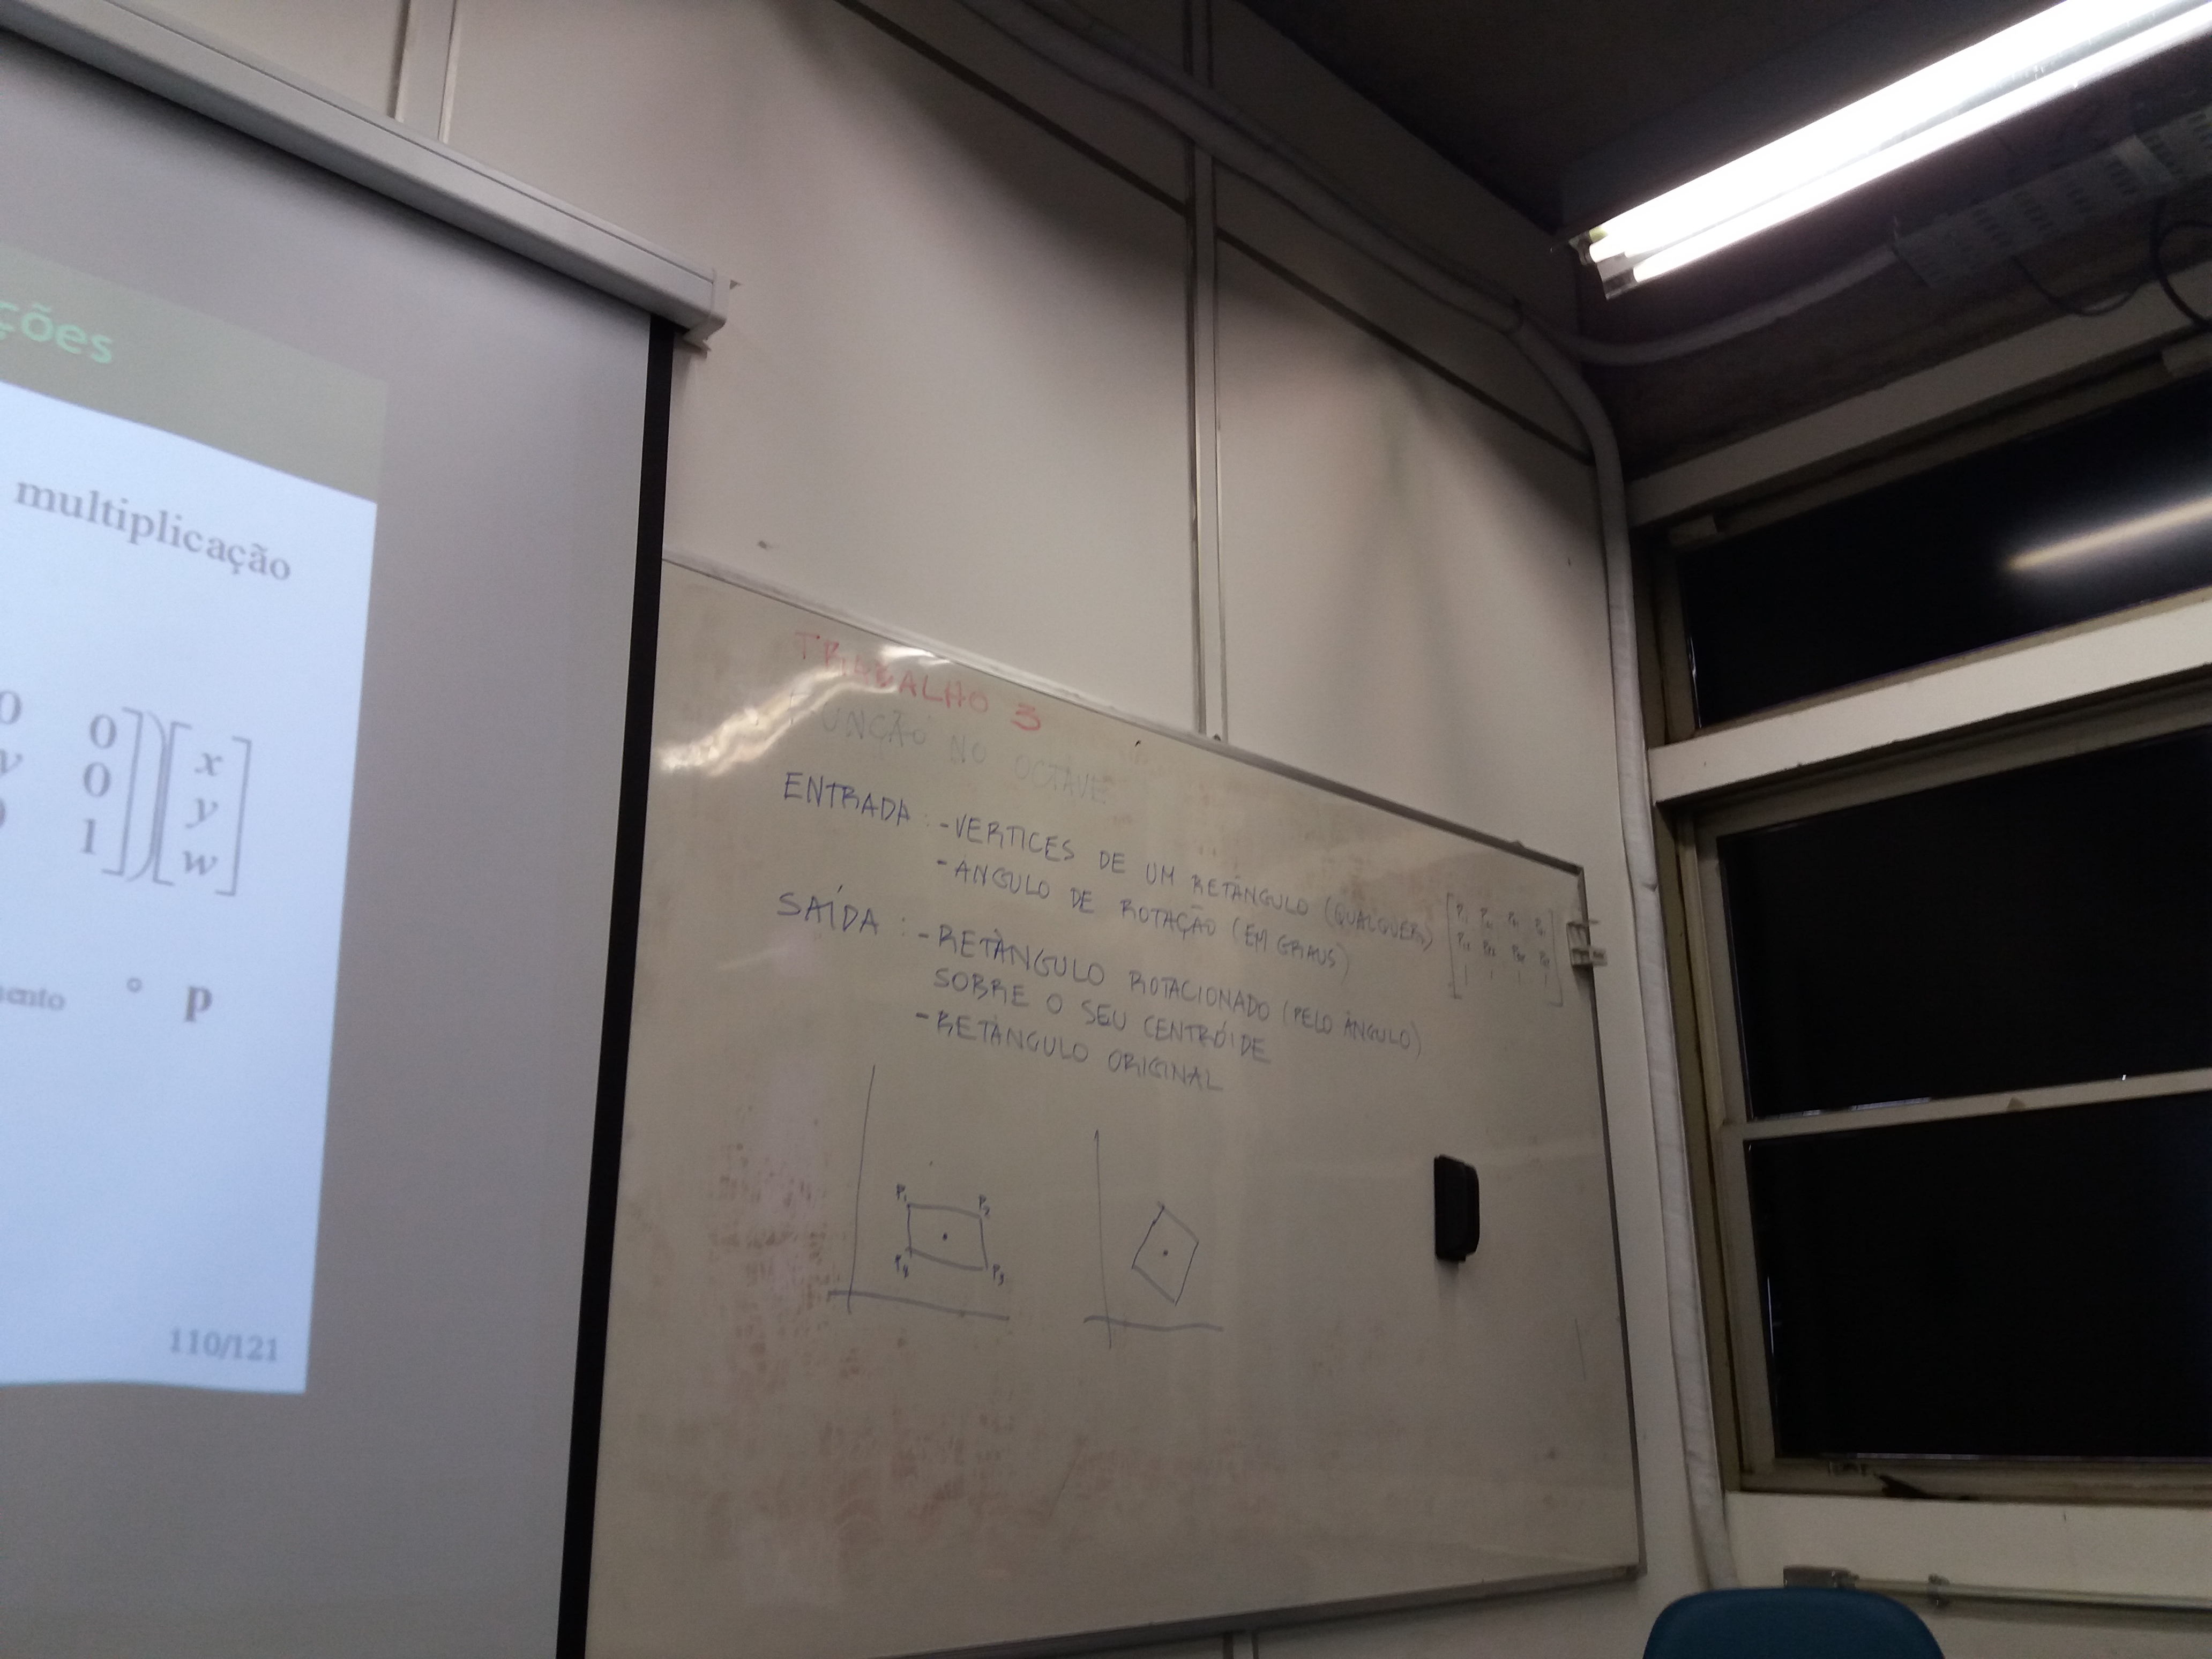 ções
multiplicação
0 0
y 0
1
x
y
w
mento ° p
110/121
TRABALHO 3
FUNÇÃO NO OCTAVE
ENTRADA : - VERTICES DE UM RETÂNGULO (QUALQUER)
- ANGULO DE ROTAÇÃO (EM GRAUS)
SAÍDA : - RETÂNGULO ROTACIONADO (PELO ÂNGULO)
SOBRE O SEU CENTRÓIDE
- RETÂNGULO ORIGINAL
P1 P2
P4 P3